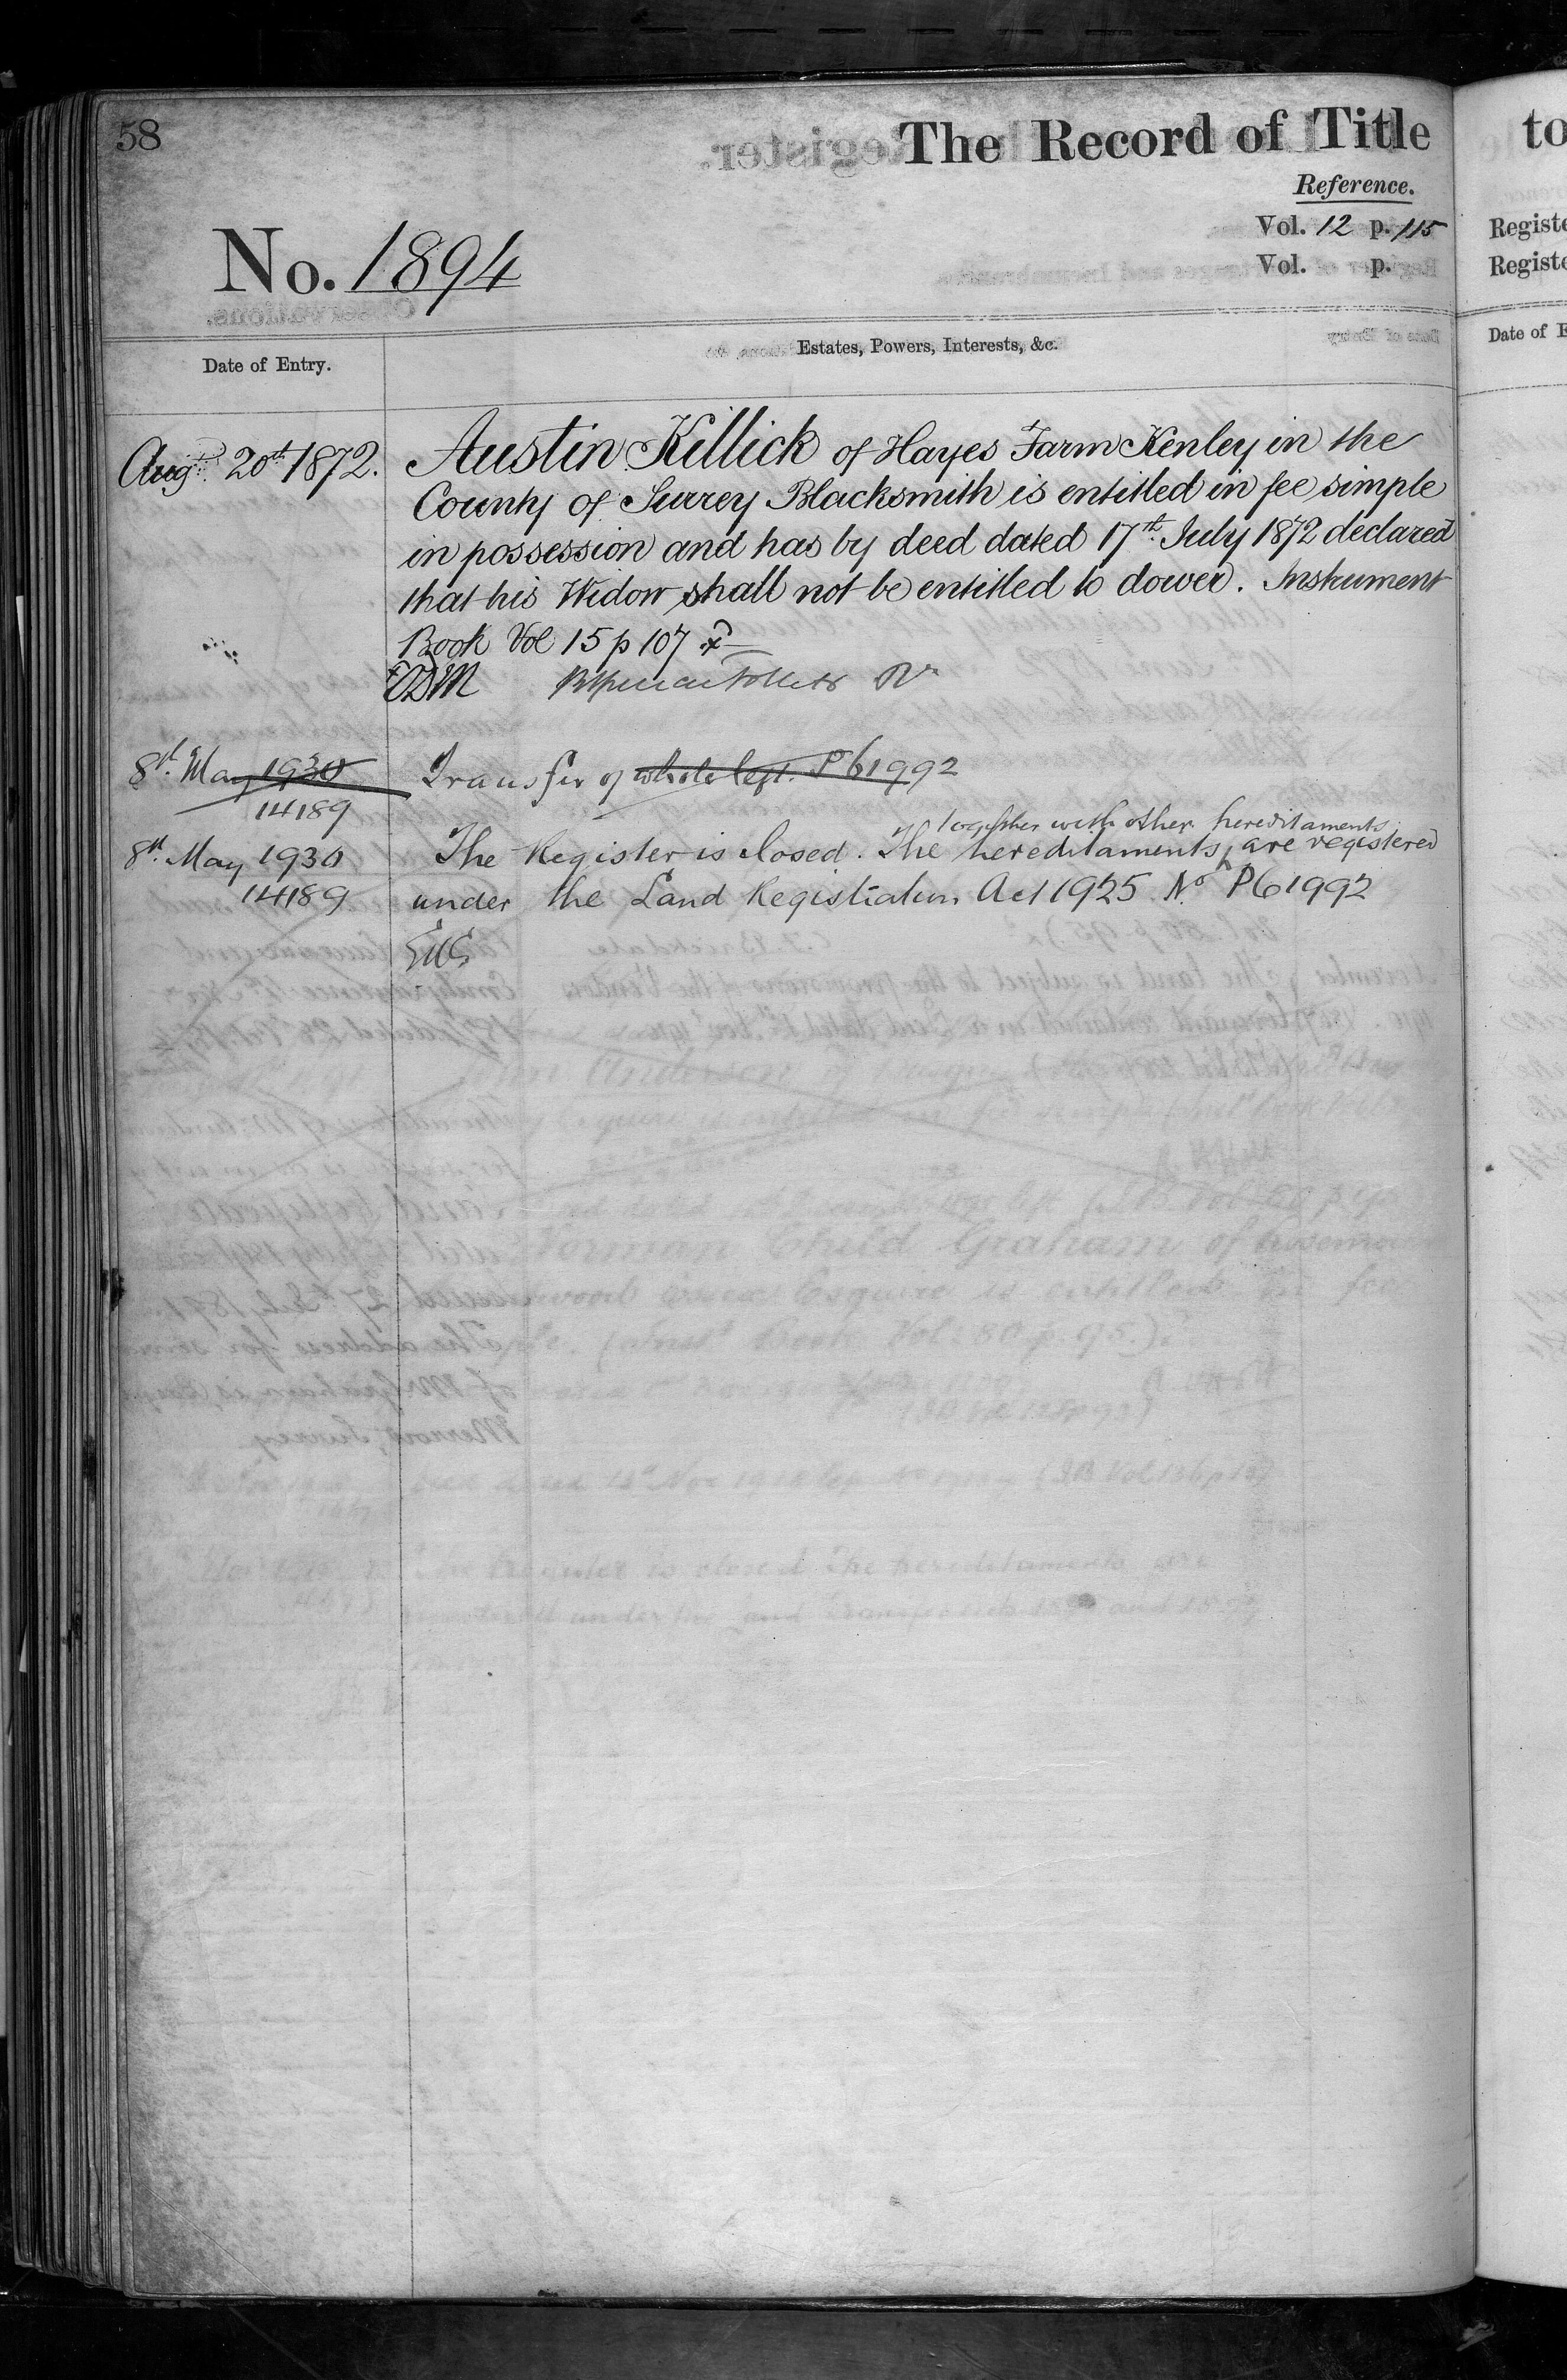 58
The Record of Title
Reference.
Vol. 12 p. 115
Vol. p.
No. 1894
Date of Entry.
Estates, Powers, Interests, &c.
Augt. 20th 1872.
Austin Killick of Hayes Farm Kenley in the
County of Surrey Blacksmith is entitled in fee simple
in possession and has by deed dated 17th July 1872 declared
that his Widow shall not be entitled to dower. Instrument
Book Vol 15 p 107
8th. May 1930
14189
Transfer of whole regd. P61992
8th. May 1930
14189
together with other hereditaments
The Register is closed. The hereditaments are registered
under the Land Registration Act 1925 No. P61992
to
Registe
Registe
Date of E